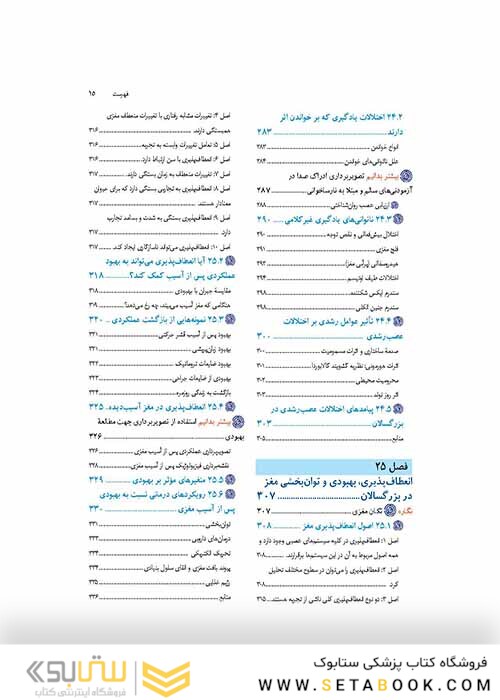 فهرست ۱۵
۲۴.۲ اختلالات یادگیری که بر خواندن اثر
دارند ۲۸۳
انواع خواندن ۲۸۳
علل ناتوانی‌های خواندن ۲۸۴
بیشتر بدانیم تصویربرداری ادراک صدا در
آزمودنی‌های سالم و مبتلا به نارساخوانی ۲۸۷
ارزیابی عصب روان‌شناختی ۲۸۸
۲۴.۳ ناتوانی‌های یادگیری غیرکلامی ۲۹۰
اختلال بیش‌فعالی و نقص توجه ۲۹۰
فلج مغزی
هیدروسفالی (پرآبی مغز) ۲۹۳
اختلالات طیف اوتیسم ۲۹۴
سندرم ایکس شکننده ۲۹۸
سندرم جنین الکلی ۲۹۸
۲۴.۴ تأثیر عوامل رشدی بر اختلالات
عصب‌رشدی ۳۰۰
صدمهٔ ساختاری و اثرات مسمومیت ۳۰۰
اثرات هورمونی: نظریه گشویند گالابوردا ۳۰۱
محرومیت محیطی ۳۰۲
اثر روز تولد ۳۰۳
۲۴.۵ پیامدهای اختلالات عصب‌رشدی در
بزرگسالان ۳۰۳
منابع ۳۰۵
فصل ۲۵
انعطاف‌پذیری، بهبودی و توان‌بخشی مغز
در بزرگسالان ۳۰۷
نگاره تکان مغزی ۳۰۷
۲۵.۱ اصول انعطاف‌پذیری مغز ۳۰۸
اصل ۱: انعطاف‌پذیری در کلیه سیستم‌های عصبی وجود دارد و
همه اصول مربوط به آن در این سیستم‌ها برقرارند. ۳۰۸
اصل ۲: انعطاف‌پذیری را می‌توان در سطوح مختلف تحلیل
کرد ۳۰۸
اصل ۳: دو نوع انعطاف‌پذیری کلی ناشی از تجربه هستند. ۳۱۵
اصل ۴: تغییرات مشابه رفتاری با تغییرات منعطف مغزی
همبستگی دارند. ۳۱۶
اصل ۵: تعامل تغییرات وابسته به تجربه ۳۱۶
اصل ۶: انعطاف‌پذیری با سن ارتباط دارد. ۳۱۶
اصل ۷: تغییرات منعطف به زمان بستگی دارند. ۳۱۷
اصل ۸: انعطاف‌پذیری به تجاربی بستگی دارد که برای حیوان
معنادار هستند. ۳۱۷
اصل ۹: انعطاف‌پذیری بستگی به شدت و بسامد تجارب
دارد ۳۱۷
اصل ۱۰: انعطاف‌پذیری می‌تواند ناسازگاری ایجاد کند. ۳۱۷
۲۵.۲ آیا انعطاف‌پذیری می‌تواند به بهبود
عملکردی پس از آسیب کمک کند؟ ۳۱۸
مقایسهٔ جبران با بهبودی ۳۱۸
هنگامی که مغز آسیب می‌بیند، چه رخ می‌دهد؟ ۳۱۹
۲۵.۳ نمونه‌هایی از بازگشت عملکردی ۳۲۰
بهبود پس از آسیب قشر حرکتی ۳۲۱
بهبود زبان‌پریشی ۳۲۱
بهبود ضایعات تروماتیک ۳۲۲
بهبودی از ضایعات جراحی ۳۲۳
بازگشت به زندگی روزمره ۳۲۴
۲۵.۴ انعطاف‌پذیری در مغز آسیب‌دیده ۳۲۵
بیشتر بدانیم استفاده از تصویربرداری جهت مطالعهٔ
بهبودی ۳۲۶
تصویربرداری عملکردی پس از آسیب مغزی ۳۲۶
نقشه‌برداری فیزیولوژیک پس از آسیب مغزی
۲۵.۵ متغیرهای مؤثر بر بهبودی ۳۲۹
۲۵.۶ رویکردهای درمانی نسبت به بهبودی
پس از آسیب مغزی ۳۳۰
توان‌بخشی ۳۳۱
درمان‌های دارویی
تحریک الکتریکی
پیوند بافت مغزی و القای سلول بنیادی ۳۳۴
رژیم غذایی ۳۳۵
منابع ۳۳۶
فروشگاه کتاب پزشکی ستابوک
WWW.SETABOOK.COM
ستابوک
فروشگاه اینترنتی کتاب